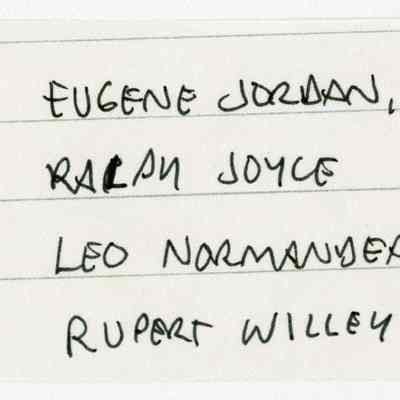 EUGENE JORDAN,
RALPH JOYCE
LEO NORMANDER
RUPERT WILLEY